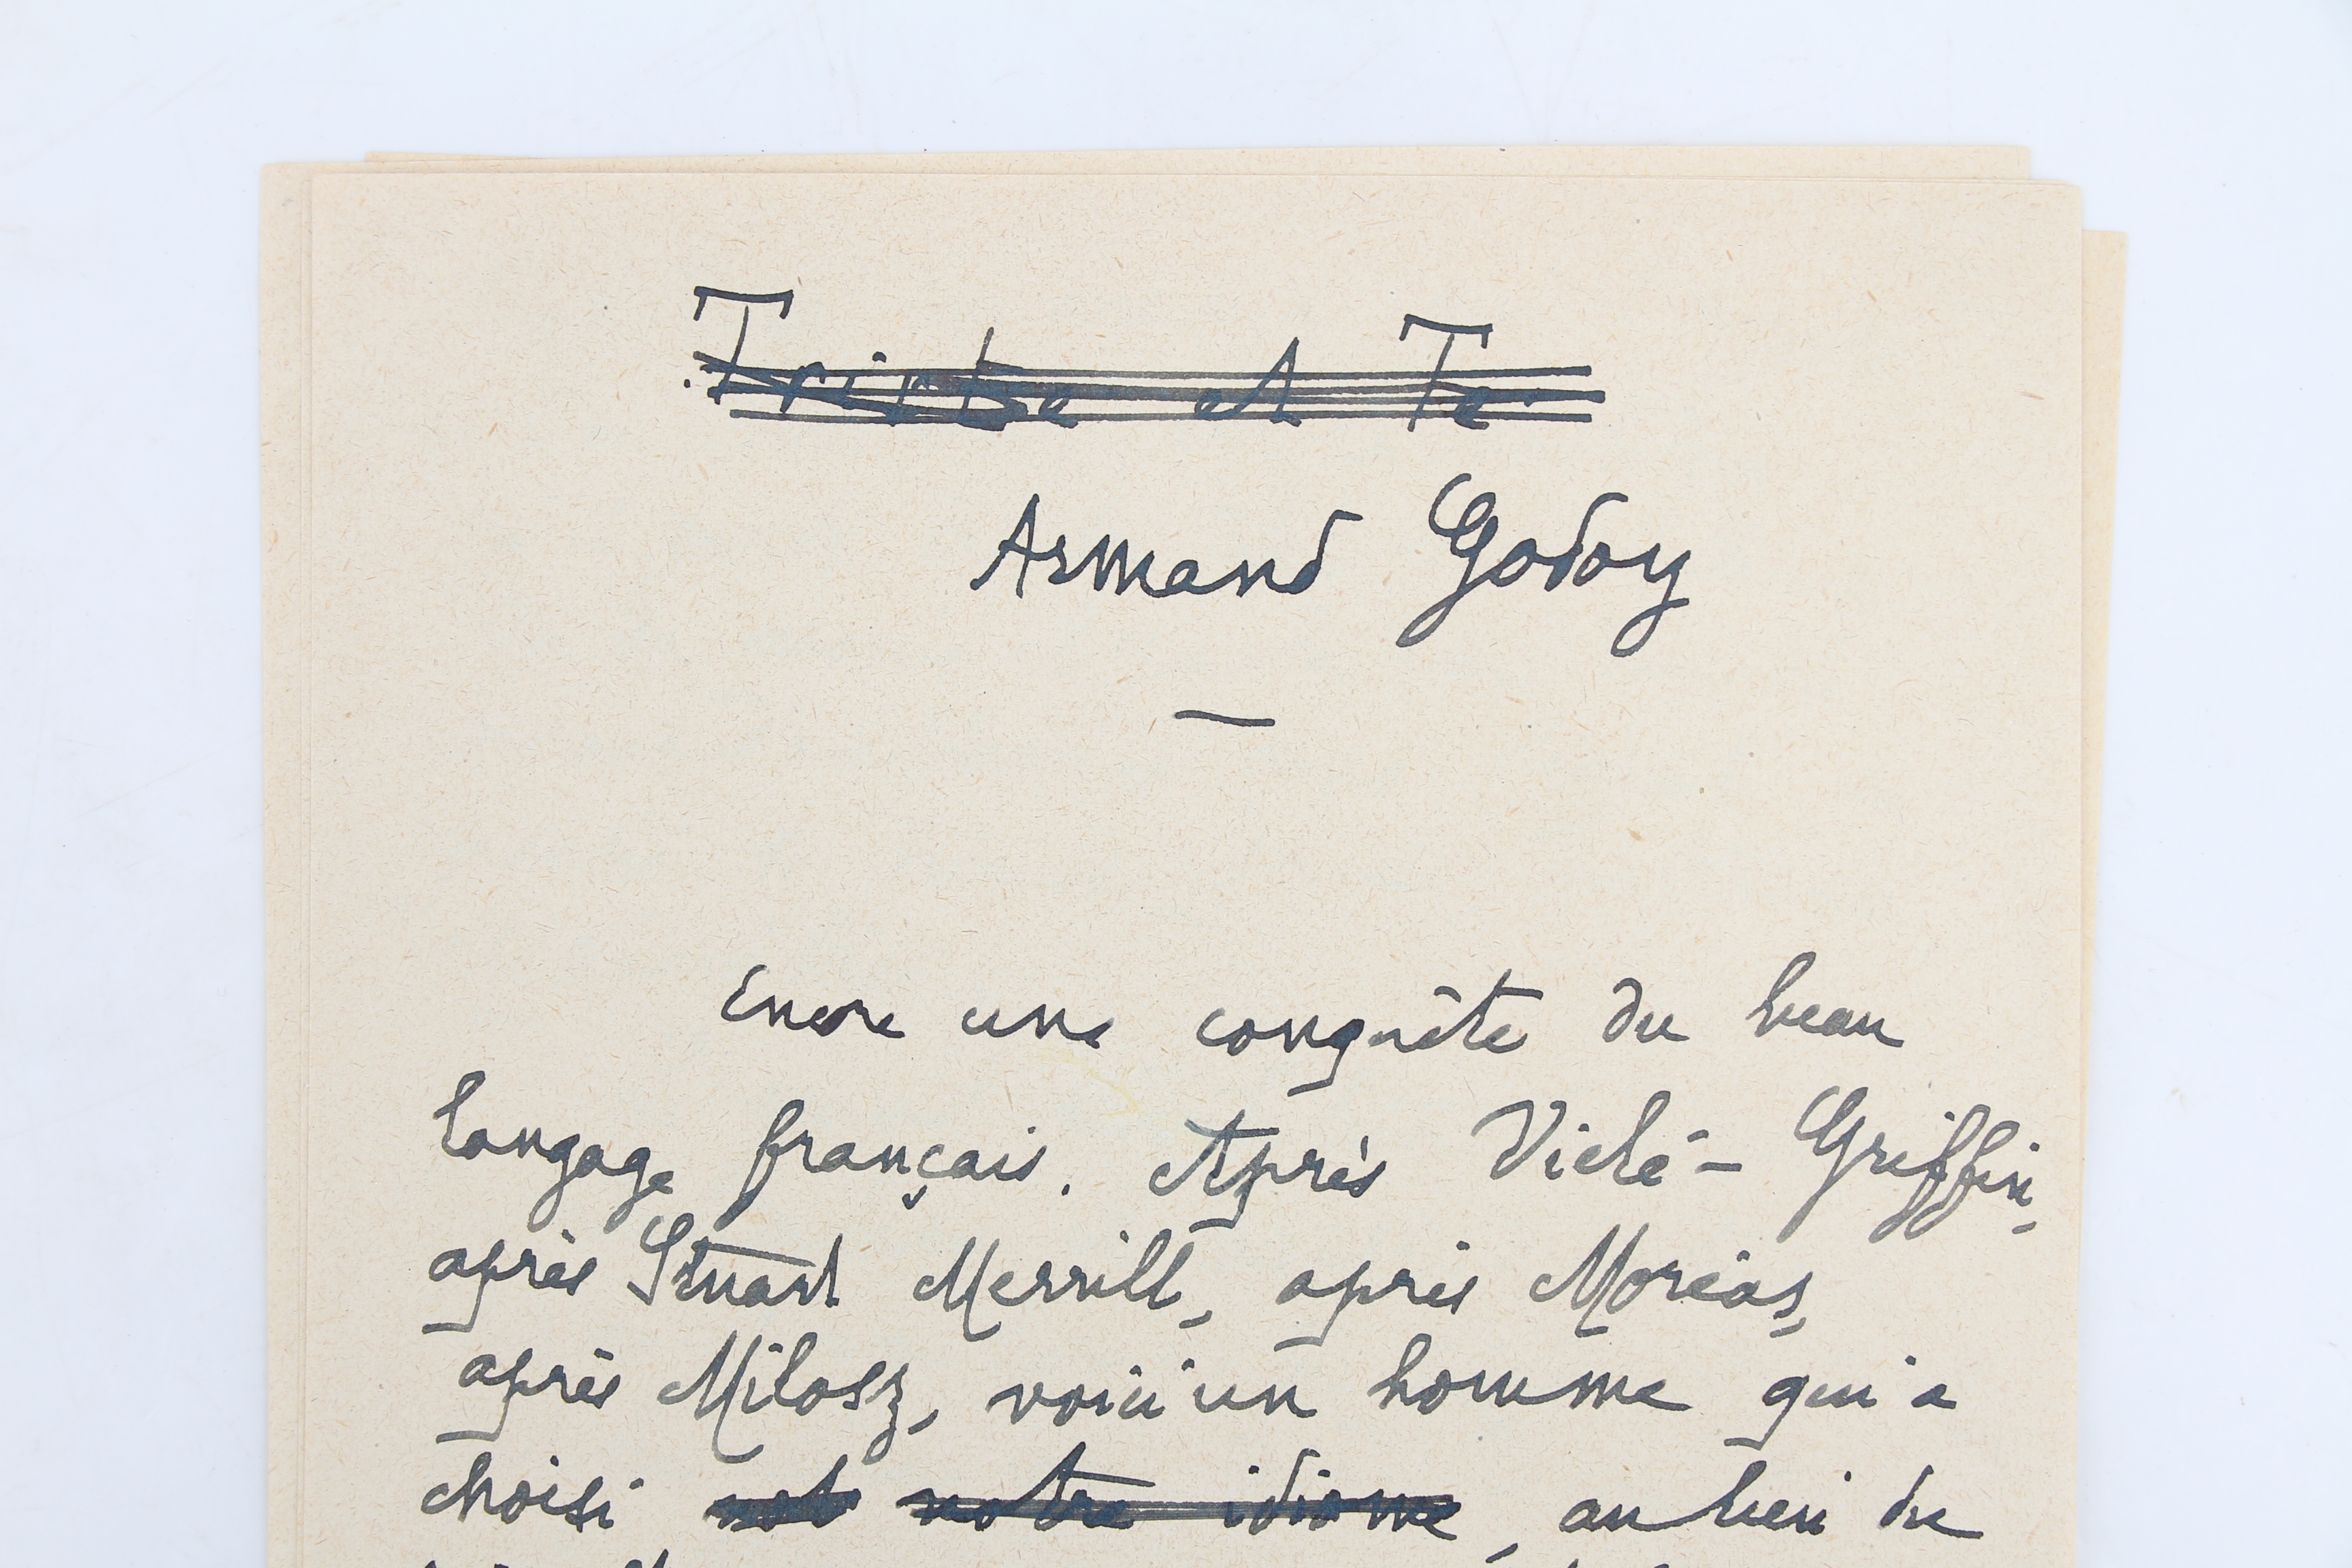 et Te
Armand Godoy
—
Encore une conquête du beau
langage français. Après Vielé-Griffin,
après Stuart Merrill, après Moréas,
après Milosz, voici un homme qui a
choisi not notre idiome, au lieu du